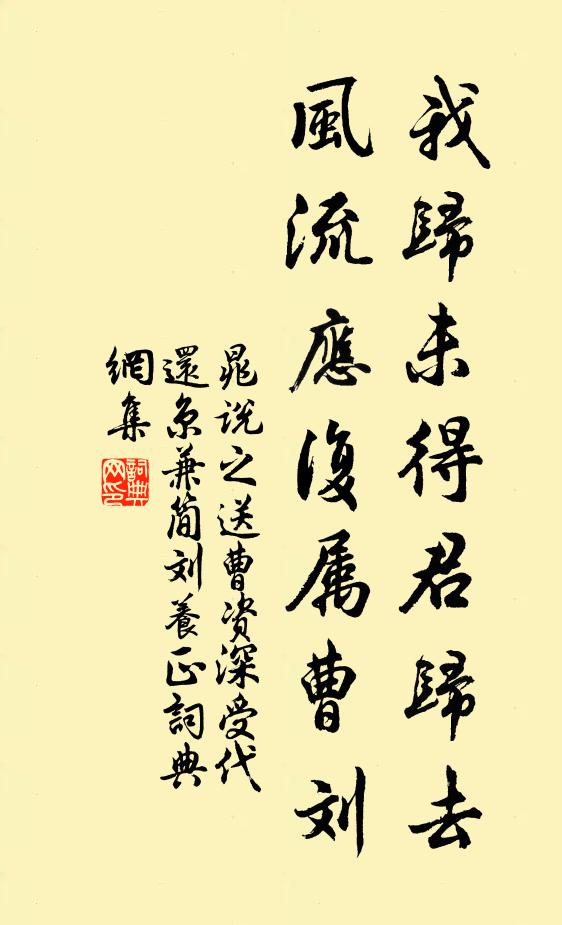 我歸未得君歸去
風流應復属曹刘
晁说之送曹资深受代
還京兼简刘養正詞典
網集
詞典网印